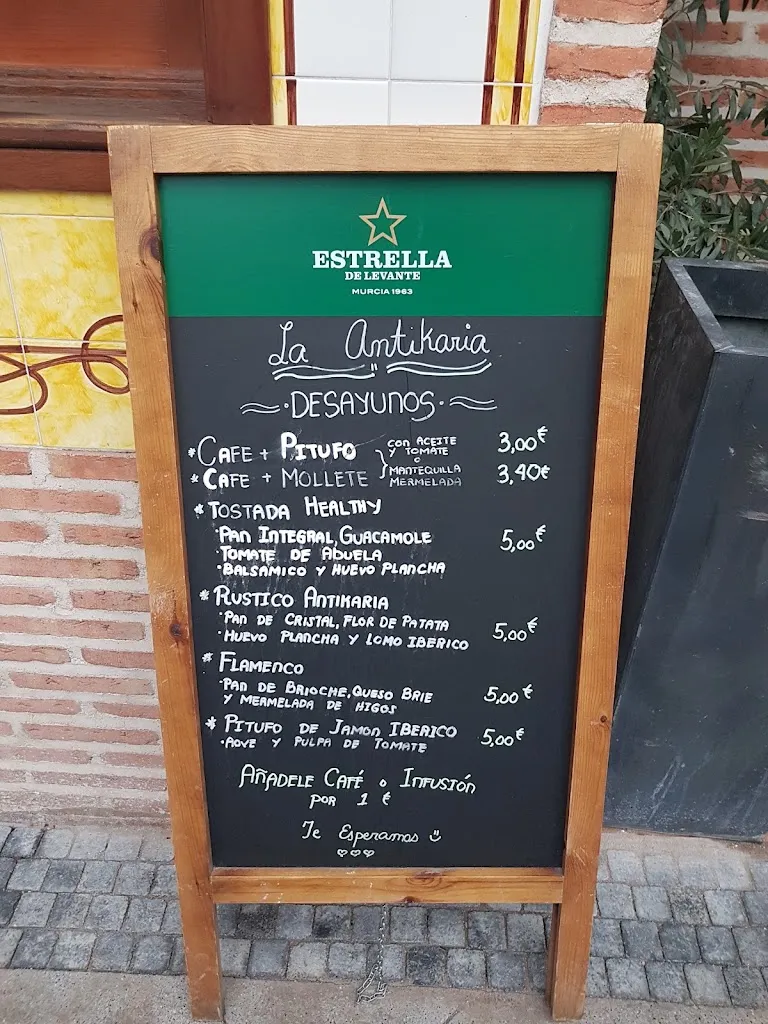 ESTRELLA
DE LEVANTE
MURCIA 1963
La Antikaria
DESAYUNOS
*CAFE + PITUFO CON ACEITE Y TOMATE 3,00€
O
*CAFE + MOLLETE MANTEQUILLA MERMELADA 3,40€
*TOSTADA HEALTHY
·PAN INTEGRAL, GUACAMOLE 5,00€
TOMATE DE ABUELA
·BALSAMICO Y HUEVO PLANCHA
*RUSTICO ANTIKARIA
·PAN DE CRISTAL, FLOR DE PATATA 5,00€
·HUEVO PLANCHA Y LOMO IBERICO
*FLAMENCO
·PAN DE BRIOCHE, QUESO BRIE 5,00€
Y MERMELADA DE HIGOS
*PITUFO DE JAMON IBERICO 5,00€
·AOVE Y PULPA DE TOMATE
AÑADELE CAFÉ O INFUSIÓN
POR 1 €
Te Esperamos